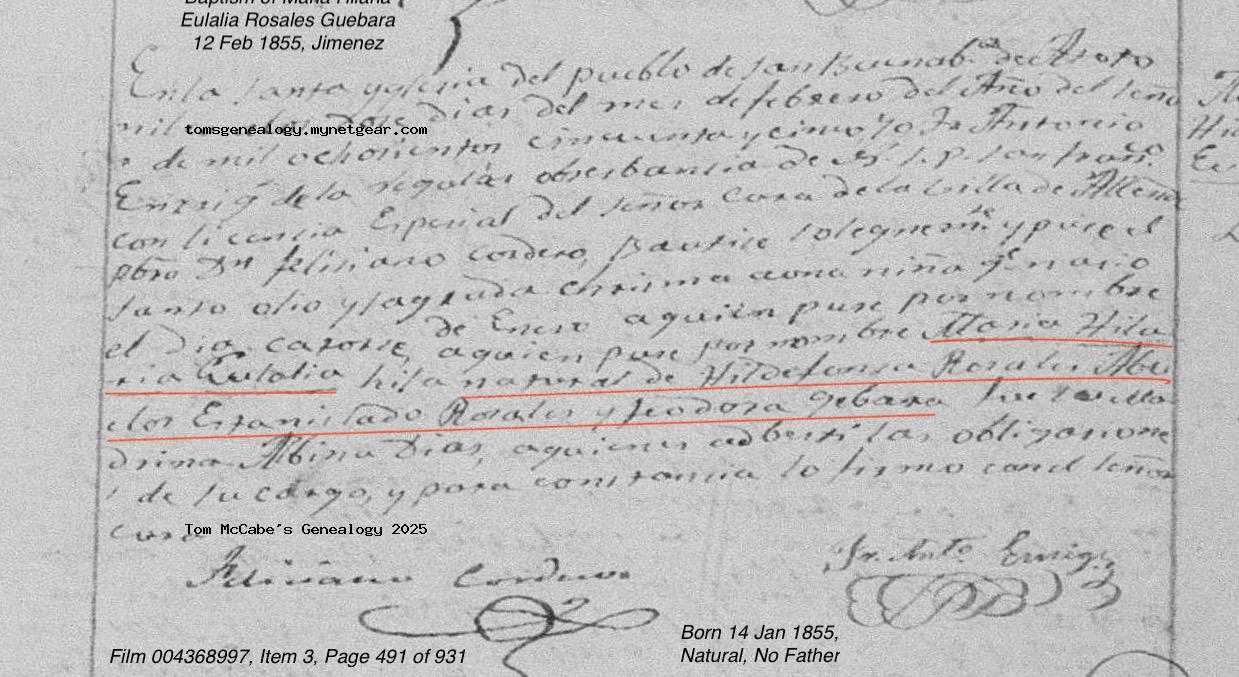 Baptism of Maria Hilaria
Eulalia Rosales Guebara
12 Feb 1855, Jimenez
En la Santa yglesia del pueblo de San Buenabª de Atoto
dose dias del mes de febrero del Año del Seño
tomsgenealogy.mynetgear.com
r de mil ochosientos cincuenta y cinco yo Fr Antonio
Enriq de la regular obserbansia de N. S. P. San Franco.
con licencia Espesial del Señor Cura de la Villa de Allende
pbro Dn felisiano Cordero, Bautise solegnemte y puse el
Santo olio y Sagrada chrisma a una niña q. nacio
el dia catorse, de Enero aquien puse por nombre
aquien puse por nombre Maria Hila
ria Eulalia hija natural de Hildefonsa Rosales Abu
elos Estanislado Rosales y teodora gebara fue su Ma
drina Albina Dias, aquienes adberti las obligasione
s de su cargo, y para constancia lo firmo con el Señor
Cura
Tom McCabe's Genealogy 2025
Felisiano Cordero
Fr. Anto. Enriq.
Born 14 Jan 1855,
Natural, No Father
Film 004368997, Item 3, Page 491 of 931